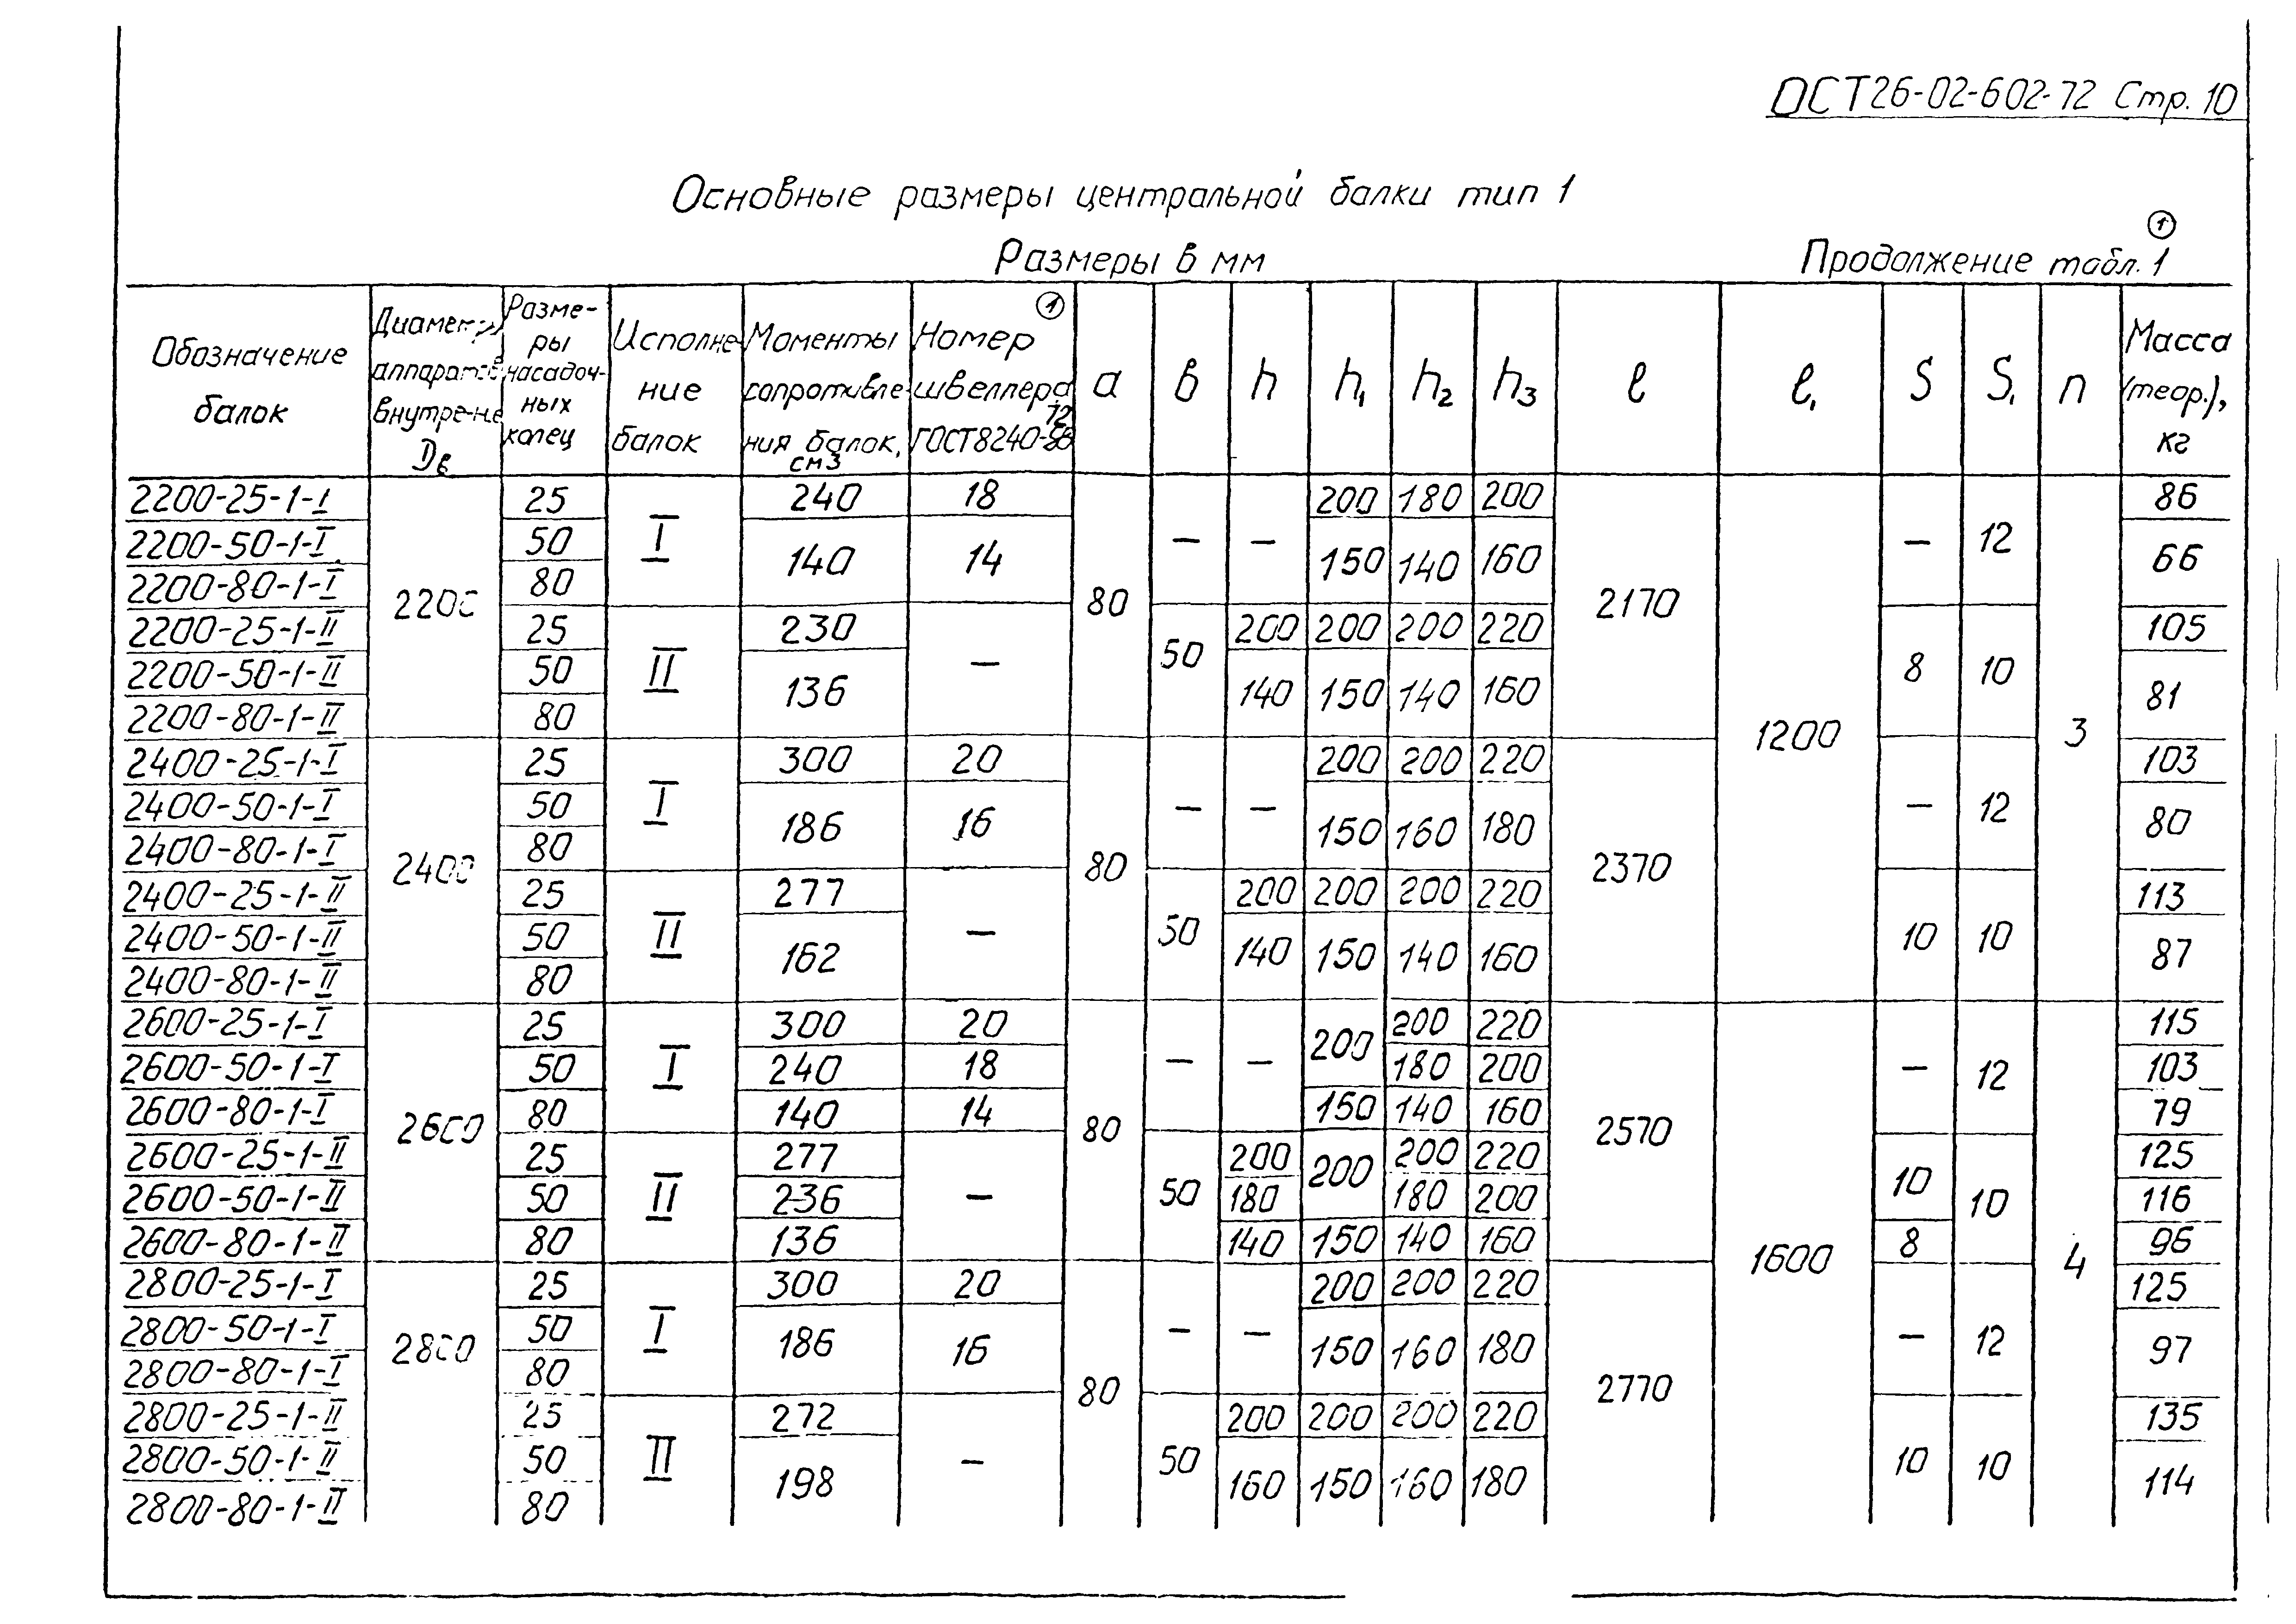 ОСТ26-02-602-72 Стр. 10
Основные размеры центральной балки тип 1
Размеры в мм
Продолжение табл. 1 ①
Обозначение балок | Диаметр аппаратов внутрен-не Dв | Разме-ры насадоч-ных колец | Исполне-ние балок | Моменты сопротивле-ния балок, см3 | Номер ① швеллера ГОСТ8240-72 | a | в | h | h₁ | h₂ | h₃ | ℓ | ℓ₁ | S | S₁ | n | Масса (теор.), кг
2200-25-1-I | 2200 | 25 | I | 240 | 18 | 80 | — | — | 200 | 180 | 200 | 2170 | 1200 | — | 12 | 3 | 86
2200-50-1-I | 50 | 140 | 14 | 150 | 140 | 160 | 66
2200-80-1-I | 80
2200-25-1-II | 25 | II | 230 | — | 50 | 200 | 200 | 200 | 220 | 8 | 10 | 105
2200-50-1-II | 50 | 136 | 140 | 150 | 140 | 160 | 81
2200-80-1-II | 80
2400-25-1-I | 2400 | 25 | I | 300 | 20 | 80 | — | — | 200 | 200 | 220 | 2370 | — | 12 | 103
2400-50-1-I | 50 | 186 | 16 | 150 | 160 | 180 | 80
2400-80-1-I | 80
2400-25-1-II | 25 | II | 277 | — | 50 | 200 | 200 | 200 | 220 | 10 | 10 | 113
2400-50-1-II | 50 | 162 | 140 | 150 | 140 | 160 | 87
2400-80-1-II | 80
2600-25-1-I | 2600 | 25 | I | 300 | 20 | 80 | — | — | 200 | 200 | 220 | 2570 | 1600 | — | 12 | 4 | 115
2600-50-1-I | 50 | 240 | 18 | 180 | 200 | 103
2600-80-1-I | 80 | 140 | 14 | 150 | 140 | 160 | 79
2600-25-1-II | 25 | II | 277 | — | 50 | 200 | 200 | 200 | 220 | 10 | 10 | 125
2600-50-1-II | 50 | 236 | 180 | 180 | 200 | 116
2600-80-1-II | 80 | 136 | 140 | 150 | 140 | 160 | 8 | 96
2800-25-1-I | 2800 | 25 | I | 300 | 20 | 80 | — | — | 200 | 200 | 220 | 2770 | — | 12 | 125
2800-50-1-I | 50 | 186 | 16 | 150 | 160 | 180 | 97
2800-80-1-I | 80
2800-25-1-II | 25 | II | 272 | — | 50 | 200 | 200 | 200 | 220 | 10 | 10 | 135
2800-50-1-II | 50 | 198 | 160 | 150 | 160 | 180 | 114
2800-80-1-II | 80